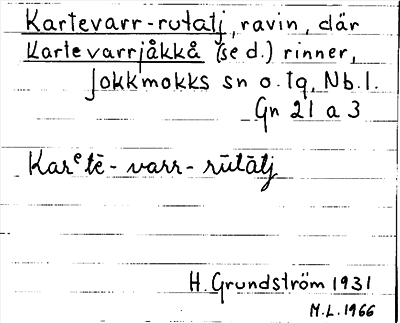 Kartevarr-rutatj, ravin, där
Kartevarrjåkkå (se d.) rinner,
Jokkmokks sn o. tg, Nb. l.
Gn 21 a 3
Karᵉtē- varr- rūtātj
H. Grundström 1931
M.L. 1966